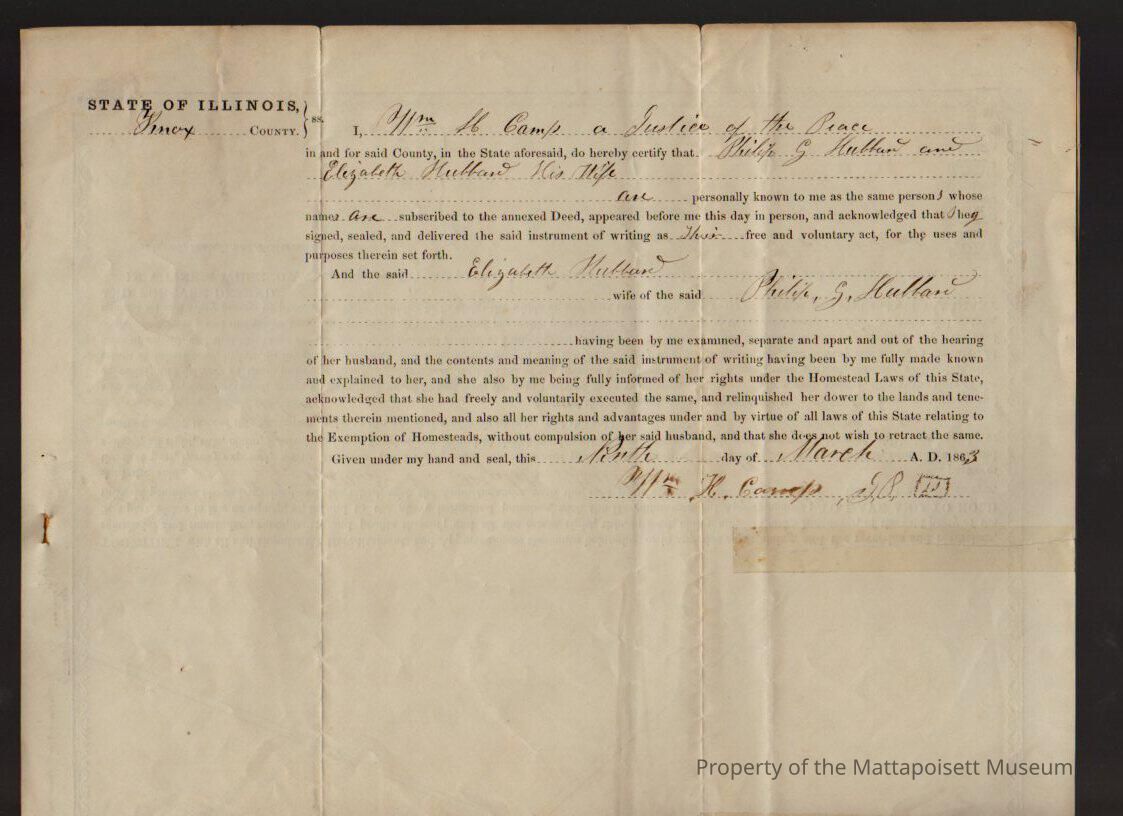 STATE OF ILLINOIS,
Knox COUNTY. } ss. I, Wm H Camp a Justice of the Peace
in and for said County, in the State aforesaid, do hereby certify that Philip G Hubbard and
Elizabeth Hubbard His Wife
are personally known to me as the same persons whose
names are subscribed to the annexed Deed, appeared before me this day in person, and acknowledged that They
signed, sealed, and delivered the said instrument of writing as Their free and voluntary act, for the uses and
purposes therein set forth.
And the said Elizabeth Hubbard
wife of the said Philip, G, Hubbard
having been by me examined, separate and apart and out of the hearing
of her husband, and the contents and meaning of the said instrument of writing having been by me fully made known
and explained to her, and she also by me being fully informed of her rights under the Homestead Laws of this State,
acknowledged that she had freely and voluntarily executed the same, and relinquished her dower to the lands and tene-
ments therein mentioned, and also all her rights and advantages under and by virtue of all laws of this State relating to
the Exemption of Homesteads, without compulsion of her said husband, and that she does not wish to retract the same.
Given under my hand and seal, this Ninth day of March A. D. 1863
Wm H. Camp
Property of the Mattapoisett Museum